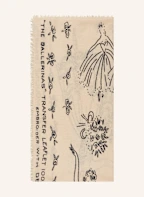 "THE BALLERINAS" TRANSFER LEAFLET 100
EMBROIDER WITH DE